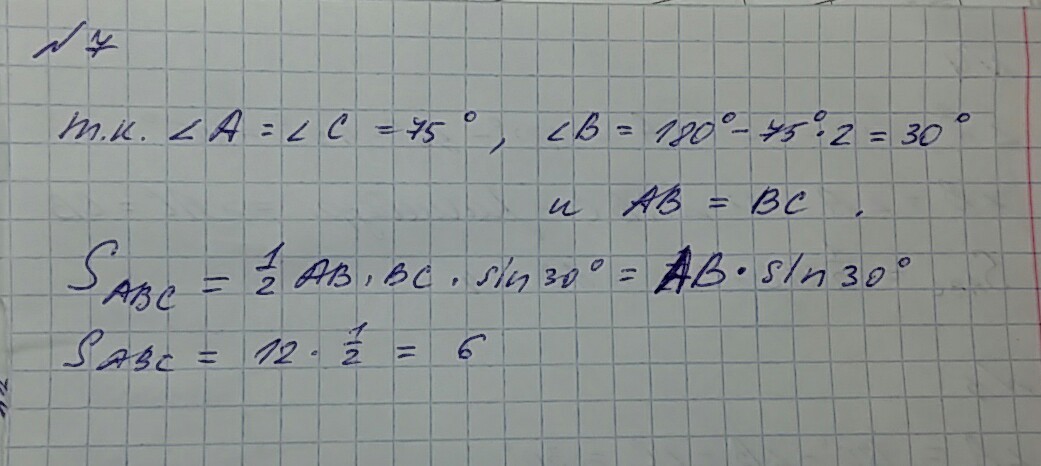 № 7
т.к. ∠A = ∠C = 75°, ∠B = 180° - 75° · 2 = 30°
и AB = BC.
S_ABC = 1/2 AB · BC · sin 30° = AB · sin 30°
S_ABC = 12 · 1/2 = 6